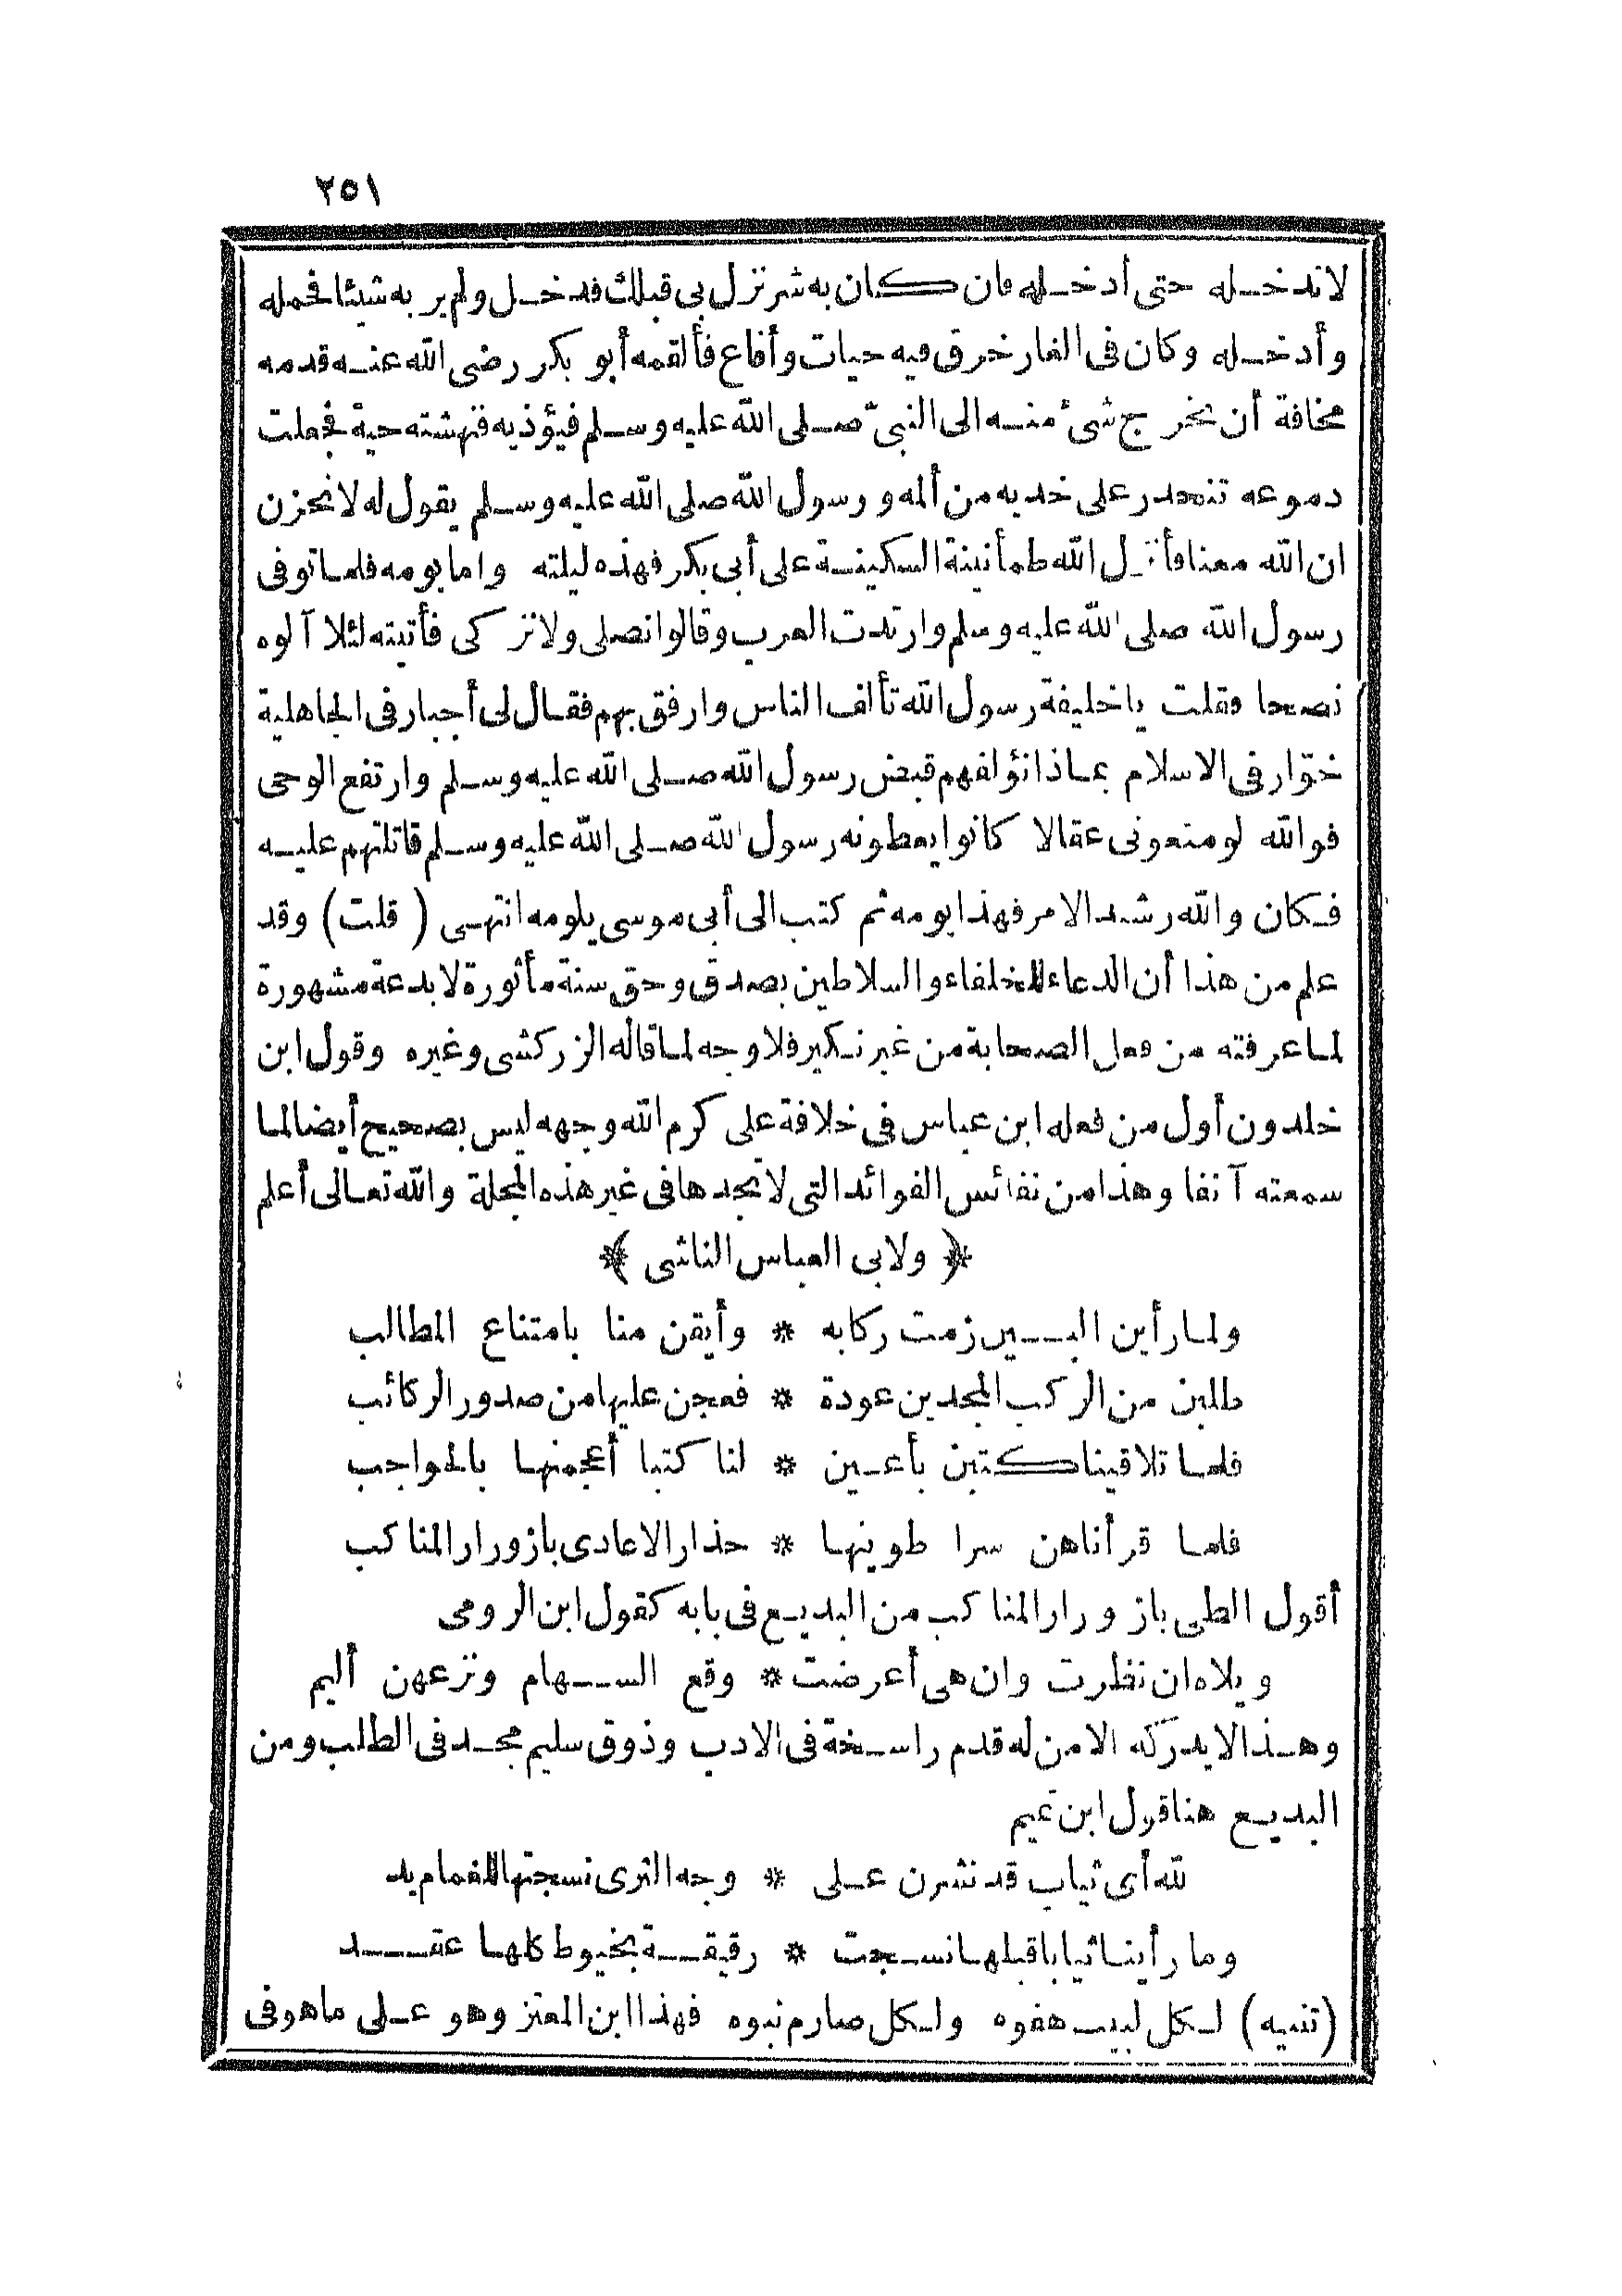 ٢٥١
لاتدخله حتى أدخله فان كان به شر نزل بي قبلك فدخل ولم ير به شيئا فحمله
وأدخله وكان في الغار خرق فيه حيات وأفاع فألقمه أبو بكر رضى الله عنه قدمه
مخافة أن يخرج شئ منه الى النبىّ صلى الله عليه وسلم فيؤذيه فنهشته حية فجعلت
دموعه تنحدر على خديه من ألمه ورسول الله صلى الله عليه وسلم يقول له لا تحزن
ان الله معنا فأنزل الله طمأنينة السكينة على أبى بكر فهذه ليلته واما يومه فلما توفى
رسول الله صلى الله عليه وسلم وارتدت العرب وقالوا نصلى ولا نزكى فأتيته لئلا آلوه
نصحا فقلت يا خليفة رسول الله تألف الناس وارفق بهم فقال لى أجبار فى الجاهلية
خوّار فى الاسلام بماذا نؤلفهم قبض رسول الله صلى الله عليه وسلم وارتفع الوحى
فوالله لو منعونى عقالا كانوا يعطونه رسول الله صلى الله عليه وسلم قاتلتهم عليه
فكان والله رشد الامر فهذا يومه ثم كتب الى أبى موسى يلومه انتهى (قلت) وقد
علم من هذا أن الدعاء للخلفاء والسلاطين بصدق وحق سنة مأثورة لا بدعة مشهورة
لما عرفته من فعل الصحابة من غير نكير فلا وجه لما قاله الزركشى وغيره وقول ابن
خلدون أول من فعله ابن عباس فى خلافة على كرم الله وجهه ليس بصحيح أيضا لما
سمعته آنفا وهذا من نفائس الفوائد التى لا تجدها فى غير هذه المجلة والله تعالى أعلم
﴿ ولابى العباس الناشى ﴾
ولما رأين البين زمت ركابه * وأيقن منا بامتناع المطالب
طلبن من الركب المجدين عودة * فعجن عليها من صدور الركائب
فلما تلاقينا كتبن بأعين * لنا كتبا أعجمنها بالحواجب
فلما قرأناهن سرا طوينها * حذار الاعادى بازورار المناكب
أقول الطى بازورار المناكب من البديع فى بابه كقول ابن الرومى
ويلاه ان نظرت وان هى أعرضت * وقع السهام ونزعهن أليم
وهذا لا يدركه الا من له قدم راسخة فى الادب وذوق سليم مجد فى الطلب ومن
البديع هنا قول ابن تميم
لله أى ثياب قد نشرن على * وجه الثرى نسجتها للغمام يد
وما رأينا ثيابا قبلها نسجت * رقيقة بخيوط كلها عقد
(تنبيه) لكل لبيب هفوه ولكل صارم نبوه فهذا ابن المعتز وهو على ماهو فى